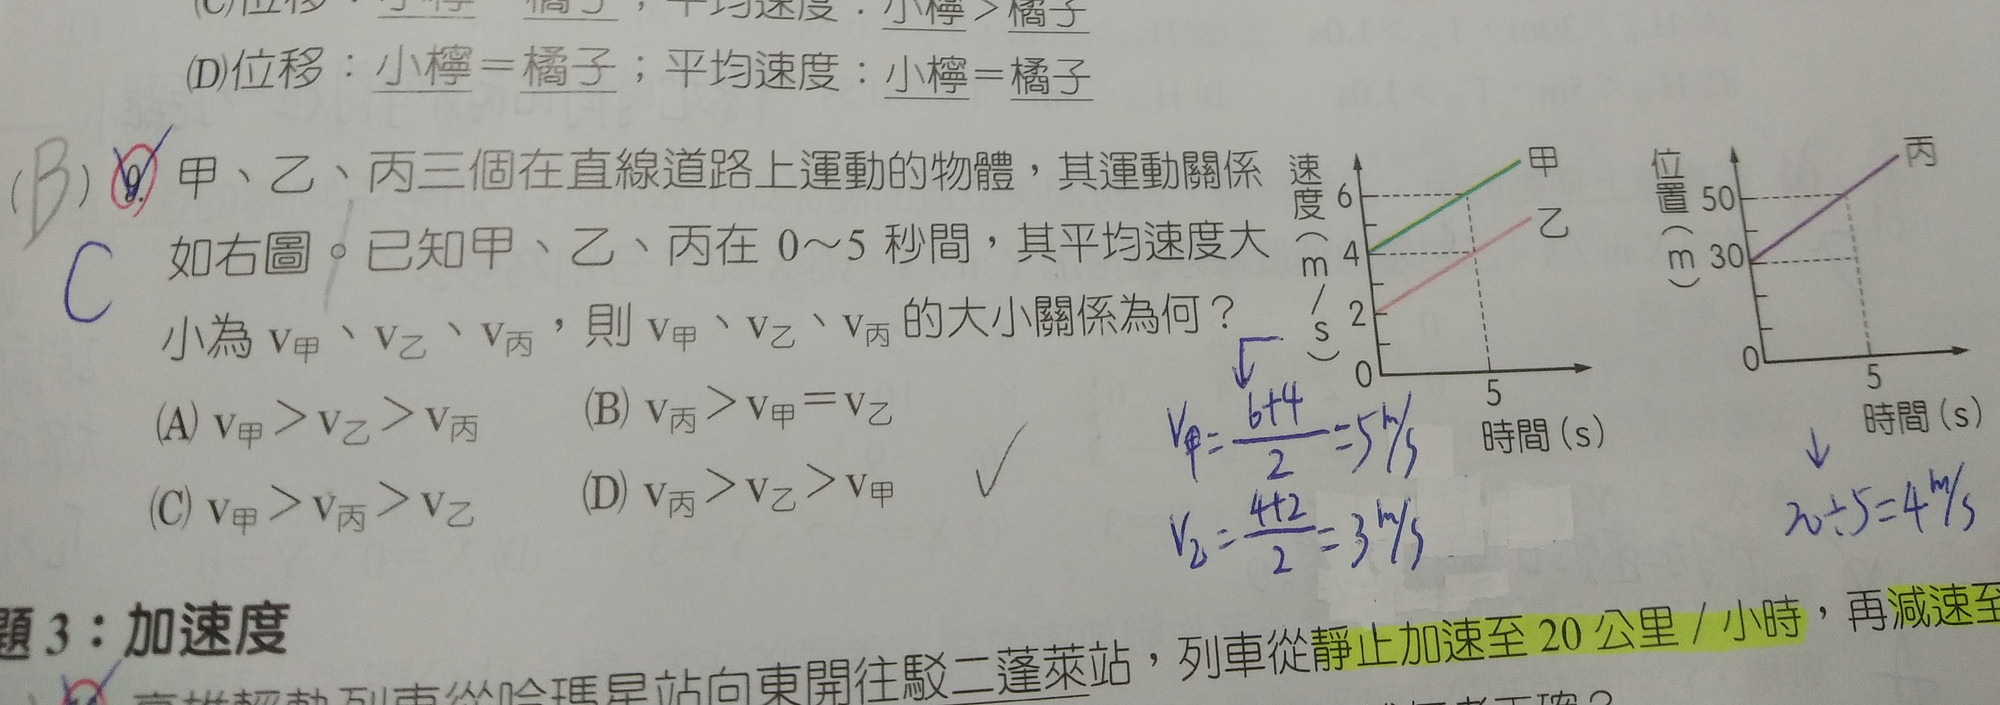 (C)位移：小檸　橘子；平均速度：小檸＞橘子
(D)位移：小檸＝橘子；平均速度：小檸＝橘子
(B) 9. 甲、乙、丙三個在直線道路上運動的物體，其運動關係
如右圖。已知甲、乙、丙在 0～5 秒間，其平均速度大
C
小為 v甲、v乙、v丙，則 v甲、v乙、v丙 的大小關係為何？
(A) v甲＞v乙＞v丙　(B) v丙＞v甲＝v乙
(C) v甲＞v丙＞v乙　(D) v丙＞v乙＞v甲
速度(m/s)
6
4
2
0
5
時間(s)
甲
乙
位置(m)
50
30
0
5
時間(s)
丙
V甲=6+4/2=5m/s
V乙=4+2/2=3m/s
20÷5=4m/s
題3：加速度
高雄輕軌列車從哈瑪星站向東開往駁二蓬萊站，列車從靜止加速至 20 公里/小時，再減速至